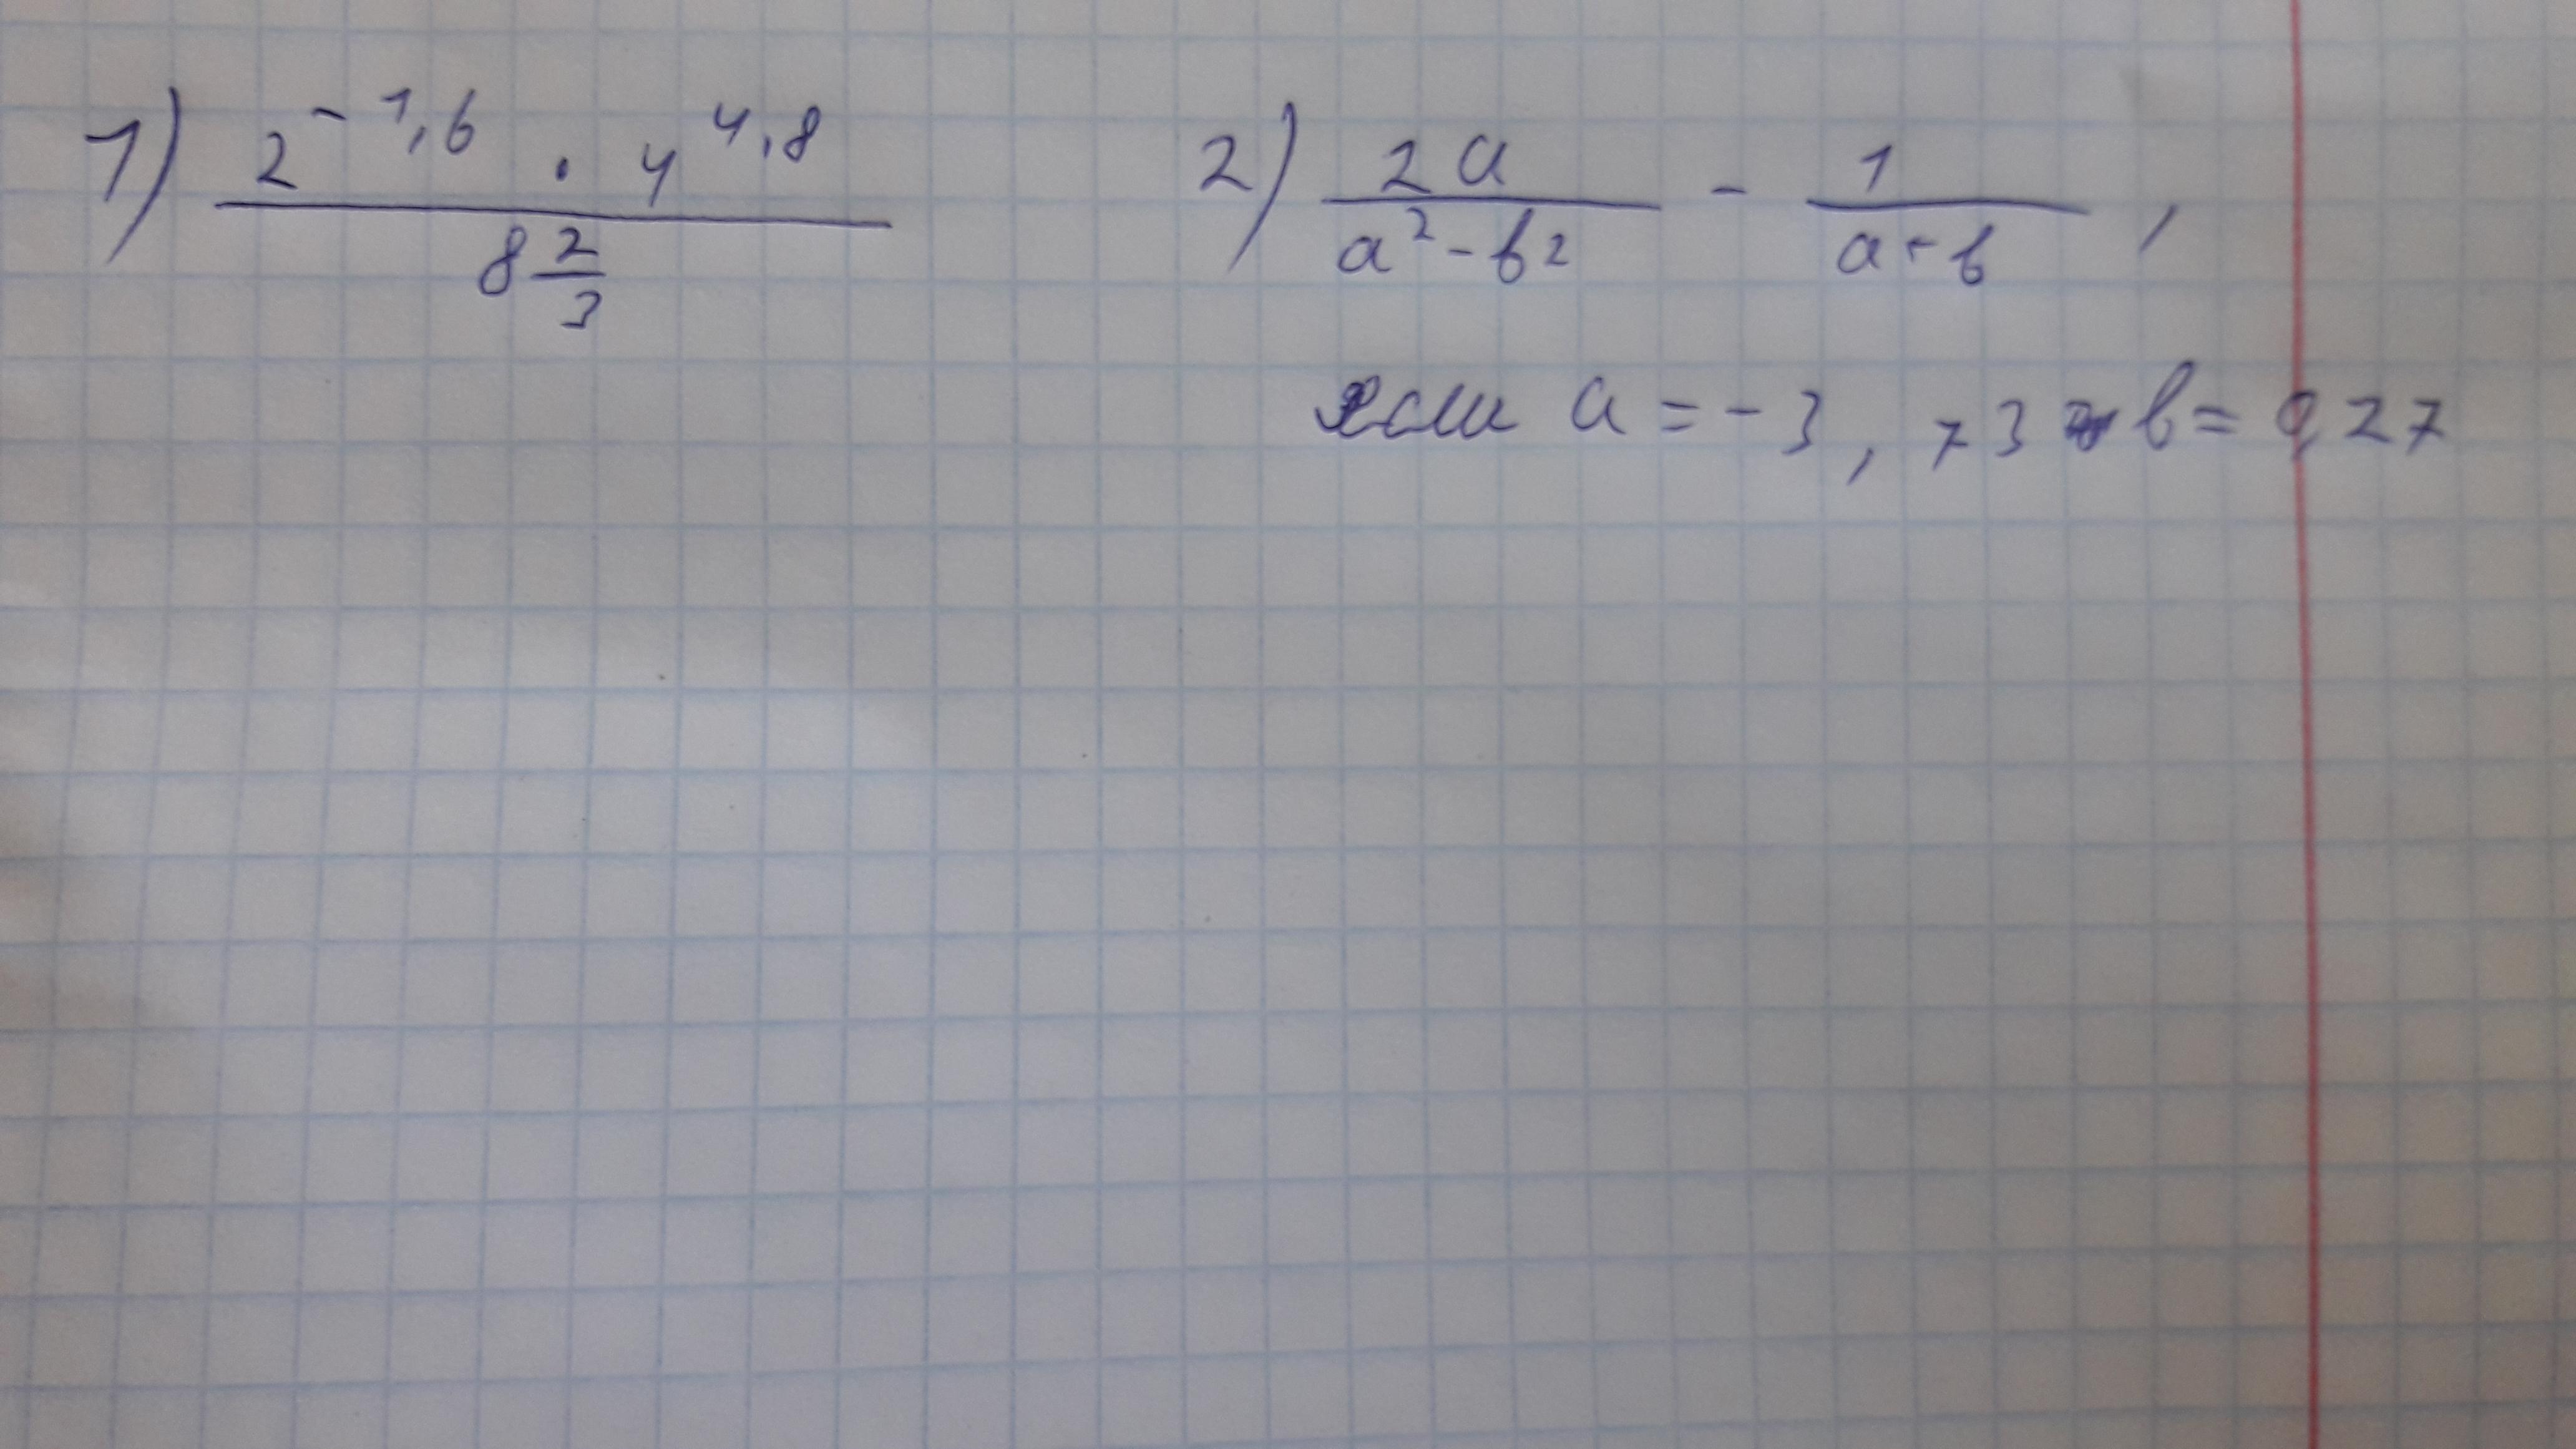 1) (2^{-1,6} · 4^{4,8}) / 8\frac{2}{3}
2) \frac{2a}{a^2-b^2} - \frac{1}{a+b},
если a = -3,73 и b = 0,27